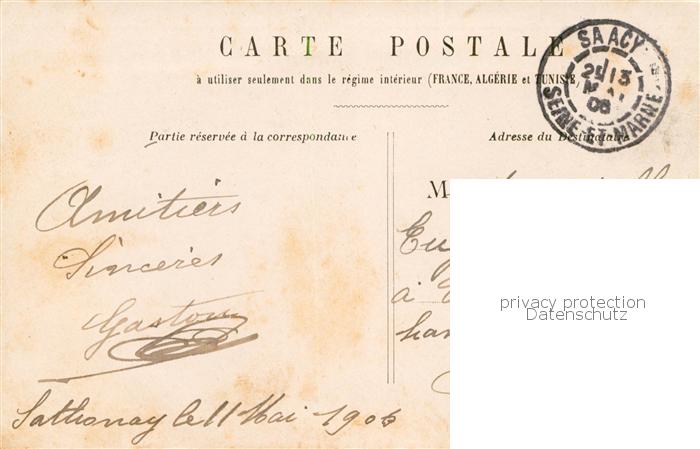 CARTE POSTALE
à utiliser seulement dans le régime intérieur (FRANCE, ALGÉRIE et TUNISIE)
SAACY
2E 13
MAI
06
SEINE-ET-MARNE
Partie réservée à la correspondance
Adresse du Destinataire
M
Amitiers
Sincères
Gaston
à
Sathonay le 11 Mai 1906
privacy protection
Datenschutz